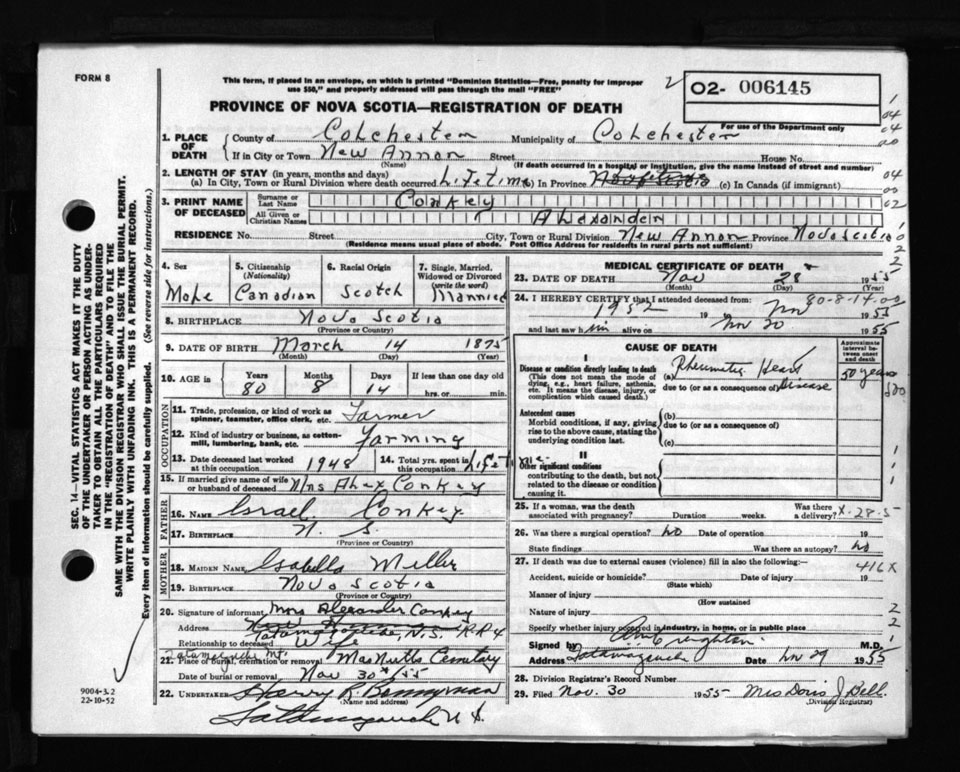 FORM 8
This form, if placed in an envelope, on which is printed "Dominion Statistics—Free, penalty for improper
use $50," and properly addressed will pass through the mail "FREE"
2
O2- 006145
For use of the Department only
PROVINCE OF NOVA SCOTIA—REGISTRATION OF DEATH
1. PLACE OF DEATH
County of Colchester Municipality of Colchester
If in City or Town New Annan Street House No.
(Name) (If death occurred in a hospital or institution, give the name instead of street and number)
2. LENGTH OF STAY (in years, months and days)
(a) In City, Town or Rural Division where death occurred Lifetime (b) In Province (c) In Canada (if immigrant)
3. PRINT NAME OF DECEASED
Surname or Last Name Conkey
All Given or Christian Names Alexander
RESIDENCE No. Street City, Town or Rural Division New Annan Province Nova Scotia
(Residence means usual place of abode. Post Office Address for residents in rural parts not sufficient)
4. Sex Male
5. Citizenship (Nationality) Canadian
6. Racial Origin Scotch
7. Single, Married, Widowed or Divorced (write the word) Married
8. BIRTHPLACE Nova Scotia
(Province or Country)
9. DATE OF BIRTH March 14 1875
(Month) (Day) (Year)
10. AGE in Years Months Days If less than one day old
80 8 14 hrs. or min.
OCCUPATION
11. Trade, profession, or kind of work as spinner, teamster, office clerk, etc. Farmer
12. Kind of industry or business, as cotton-mill, lumbering, bank, etc. Farming
13. Date deceased last worked at this occupation 1948
14. Total yrs. spent in this occupation Lifetime
15. If married give name of wife or husband of deceased Mrs Alex Conkey
FATHER
16. NAME Israel Conkey
17. BIRTHPLACE N. S.
(Province or Country)
MOTHER
18. MAIDEN NAME Isabella Miller
19. BIRTHPLACE Nova Scotia
(Province or Country)
20. Signature of informant Mrs Alexander Conkey
Address Tatamagouche, N.S. R.R 4
Relationship to deceased Wife
21. Place of burial, cremation or removal Cemetary
Date of burial or removal Nov 30 1955
22. UNDERTAKER Harry R. Bonnyman
(Name and address)
Tatamagouche N S.
MEDICAL CERTIFICATE OF DEATH
23. DATE OF DEATH Nov 28 1955
(Month) (Day) (Year)
80-8-14-02
24. I HEREBY CERTIFY that I attended deceased from:
1952 19 Nov 1955
and last saw him alive on Nov 20 1955
CAUSE OF DEATH
Approximate interval between onset and death
I
Disease or condition directly leading to death
(This does not mean the mode of dying, e.g., heart failure, asthenia, etc. It means the disease, injury, or complication which caused death.)
(a) Rheumatic Heart Disease 50 years
due to (or as a consequence of)
Antecedent causes
Morbid conditions, if any, giving rise to the above cause, stating the underlying condition last.
(b)
due to (or as a consequence of)
(c)
II
Other significant conditions
contributing to the death, but not related to the disease or condition causing it.
25. If a woman, was the death associated with pregnancy? Duration weeks. Was there a delivery?
26. Was there a surgical operation? No Date of operation 19
State findings Was there an autopsy? No
27. If death was due to external causes (violence) fill in also the following: 416X
Accident, suicide or homicide? Date of injury 19
(State which)
Manner of injury
(How sustained
Nature of injury
Specify whether injury occurred in industry, in home, or in public place
Signed by Creighton M.D.
Address Tatamagouche Date Nov 29 1955
28. Division Registrar's Record Number
29. Filed Nov. 30 1955 Mrs Doris J Bell.
(Division Registrar)
SEC. 14—VITAL STATISTICS ACT MAKES IT THE DUTY
OF THE UNDERTAKER OR PERSON ACTING AS UNDER-
TAKER TO OBTAIN ALL THE PARTICULARS REQUIRED
IN THE "REGISTRATION OF DEATH" AND TO FILE THE
SAME WITH THE DIVISION REGISTRAR WHO SHALL ISSUE THE BURIAL PERMIT.
WRITE PLAINLY WITH UNFADING INK. THIS IS A PERMANENT RECORD.
Every item of information should be carefully supplied. (See reverse side for instructions.)
9004-3.2
22-10-52